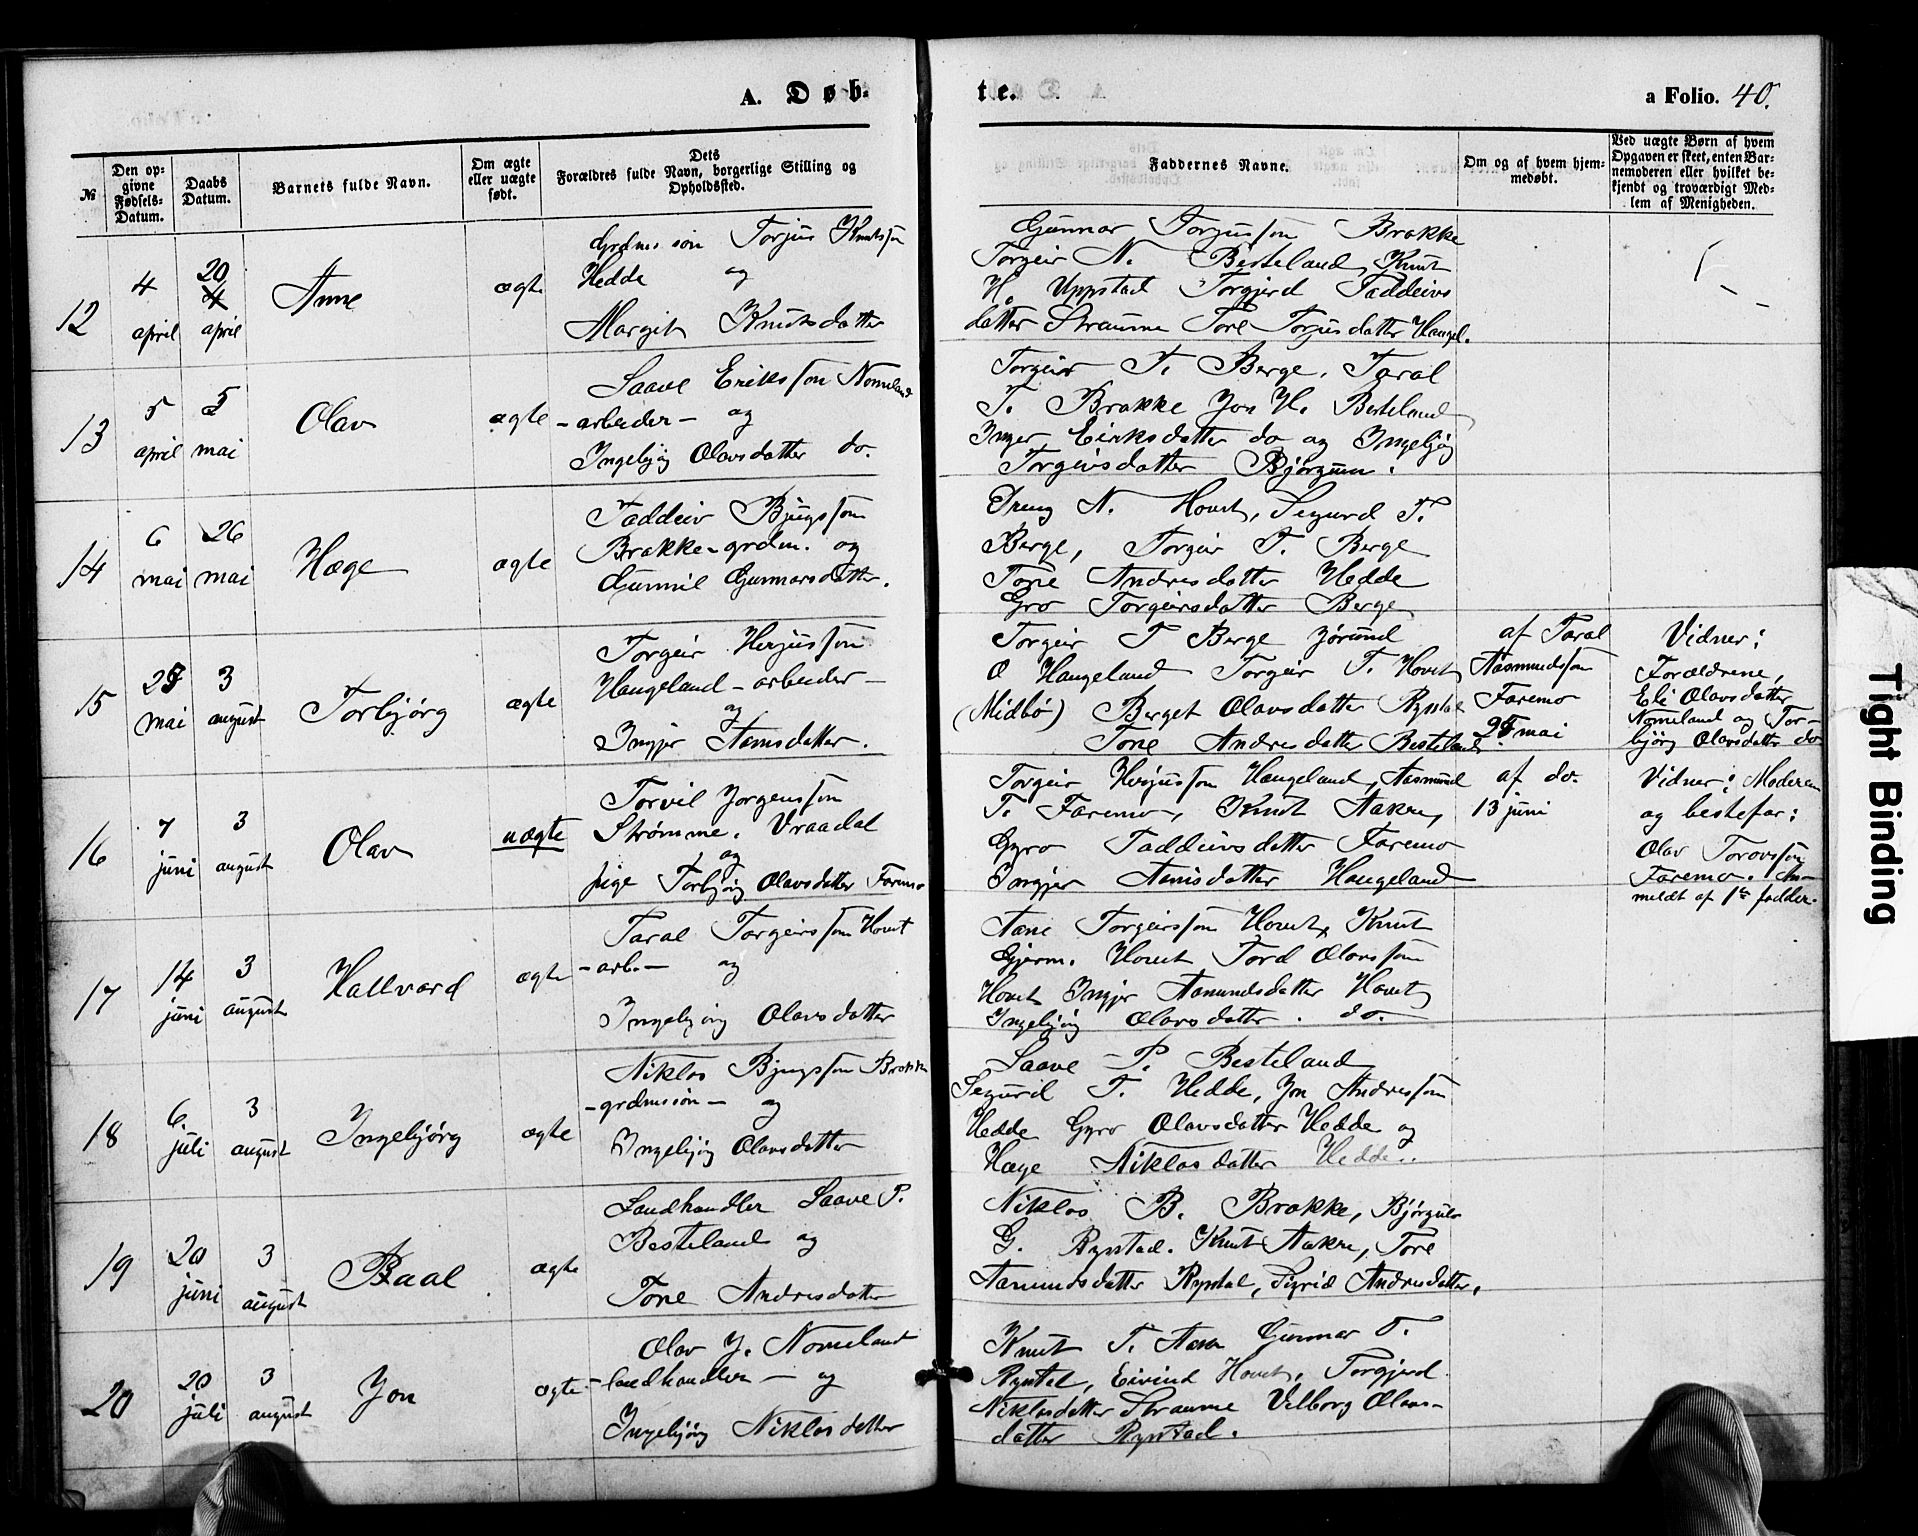 A. Døb-
te.
a Folio. 40.
№
Den op-
givne
Fødsels-
Datum.
Daabs
Datum.
Barnets fulde Navn.
Om ægte
eller uægte
født.
Dets
Forældres fulde Navn, borgerlige Stilling og
Opholdssted.
Faddernes Navne.
Om og af hvem hjem-
medøbt.
Ved uægte Børn af hvem
Opgaven er skeet, enten Bar-
nemoderen eller hvilket be-
kjendt og troværdigt Med-
lem af Menigheden.
12
4
april
20
4
april
Anne
ægte
Grdms søn Torjus Knutsson
Hedde og
Margit Knutsdatter
Gunnar Torjusson Brokke
Torgeir N. Besteland, Knut
H. Uppstad Torgjerd Taddeivs
datter Straume Tore Torjusdatter Haugel.
13
5
april
5
mai
Olav
ægte
Saave Eriksson Nomeland
- arbeider - og
Ingebjög Olavsdatter do.
Torgeir T. Berge, Taral
T. Brokke Jon H. Besteland
Inger Eiriksdatter do og Ingebjög
Torgeirsdatter Bjørgum.
14
6
mai
26
mai
Hæge
ægte
Taddeiv Bjugsson
Brokke - grdm. og
Gunnil Gunnarsdatter.
Dreng N. Hovet, Segurd T.
Berge, Torgeir T. Berge
Tone Andresdatter Hedde
Gro Torgeirsdatter Berge
15
25
mai
3
august
Torbjørg
ægte
Torgeir Herjusson
Haugeland - arbeider -
og
Ingjer Aanisdatter.
Torgeir T Berge Jørund
O Haugeland Torgeir T. Hovet
(Midbö) Berget Olavsdatter Rystad
Tone Andresdatter Besteland
af Taral
Aasmundsson
Faremo
25 mai
Vidner:
Forældrene,
Eli Olavsdatter
Nomeland og Tor-
björg Olavsdatter do
16
7
juni
3
august
Olav
uægte
Torvil Jorgensson
Strømme. Vraadal
og
pige Torbjög Olavsdatter Faremo
Torgeir Herjusson Haugeland, Aasmund
T. Faremo, Knut Aakre,
Gyro Taddeivsdatter Faremo
Ingjer Aanisdatter Haugeland
af do.
13 juni
Vidner: Moderen
og bestefar:
Olav Torovsson
Faremo. An-
meldt af 1ste fadder.
17
14
juni
3
august
Hallvard
ægte
Taral Torgeirsson Hovet
- arb. - og
Ingebjörg Olavsdatter
Aani Torgeirsson Hovet, Knut
Gjerm. Hovet Tord Olavsson
Hovet Ingjer Aamundsdatter Hovet
Ingebjög Olavsdatter. do.
18
6.
juli
3
august
Ingebjørg
ægte
Niklas Bjugsson Brokke
- grdmssön - og
Ingebjög Olavsdatter
Saave P. Besteland
Segurd T. Hedde, Jon Andresson
Hedde Gyro Olavsdatter Hedde og
Hæge Niklasdatter Hedde..
19
20
juni
3
august
Paal
ægte
Landhandler Saave P.
Besteland og
Tone Andresdatter
Niklas B. Brokke, Björgulv
G. Rystad. Knut Aakre, Tore
Aamundsdatter Rystad, Sigrid Andresdatter.
20
20
juli
3
august
Jon
ægte
Olav J. Nomeland
- landhandler - og
Ingebjörg Niklasdatter
Knut T. Aakre Gunnar O.
Rystad, Eivind Hovet, Torgjerd
Niklasdatter Straume Vilborg Olavs-
datter Rystad.
Tight Binding